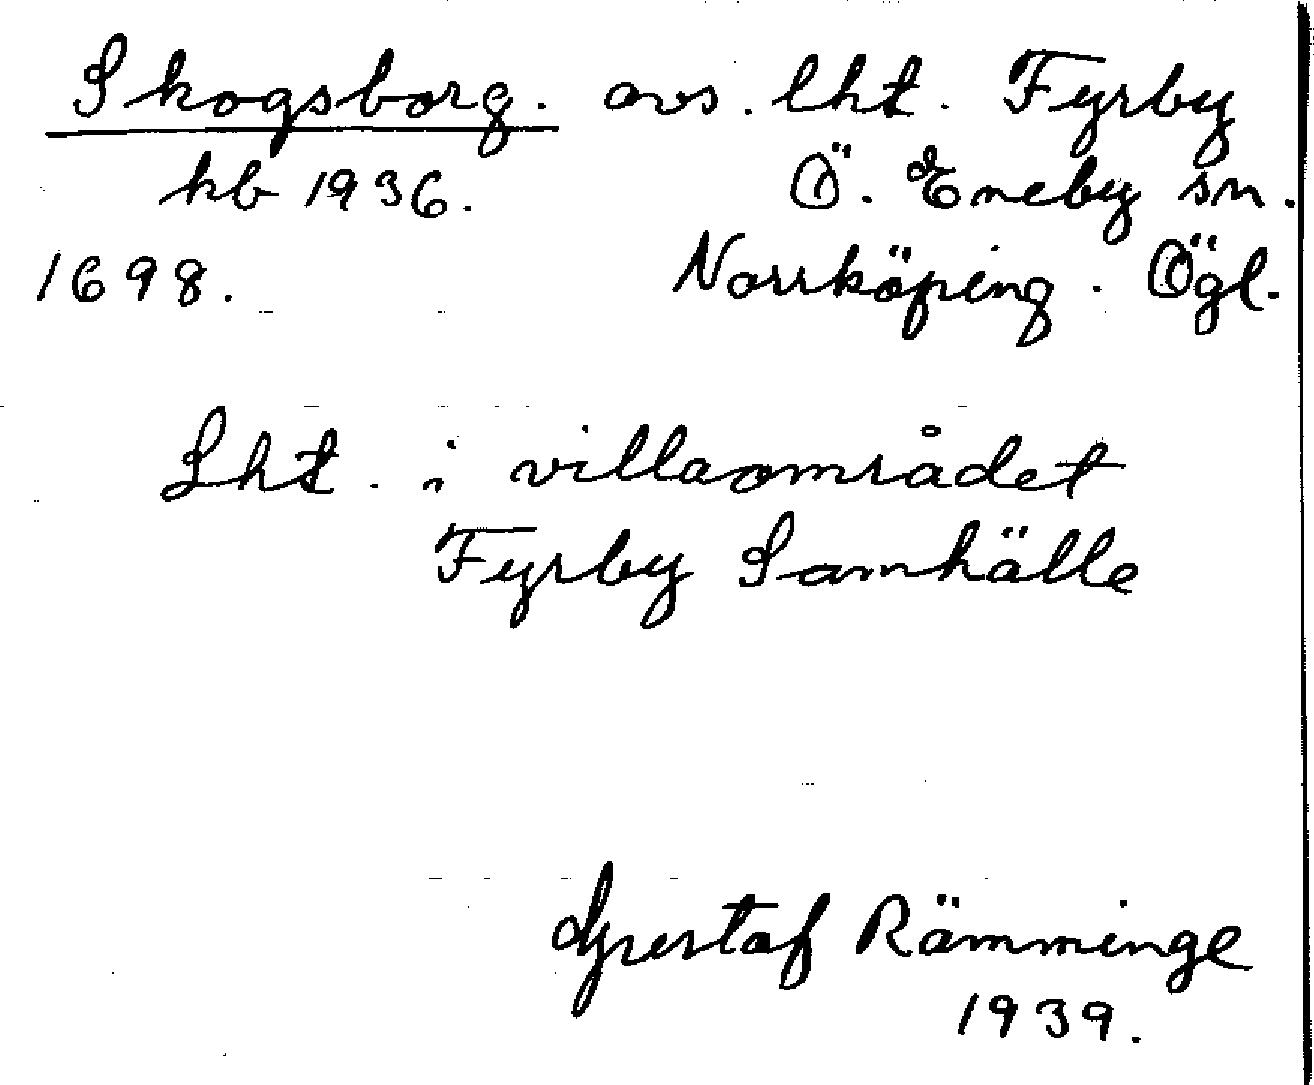 Skogsborg. avs. lht. Fyrby
hb 1936. Ö. Eneby sn.
1698. Norrköping. Ögl.
Lht. i villaområdet
Fyrby Samhälle
Gustaf Rämminge
1939.